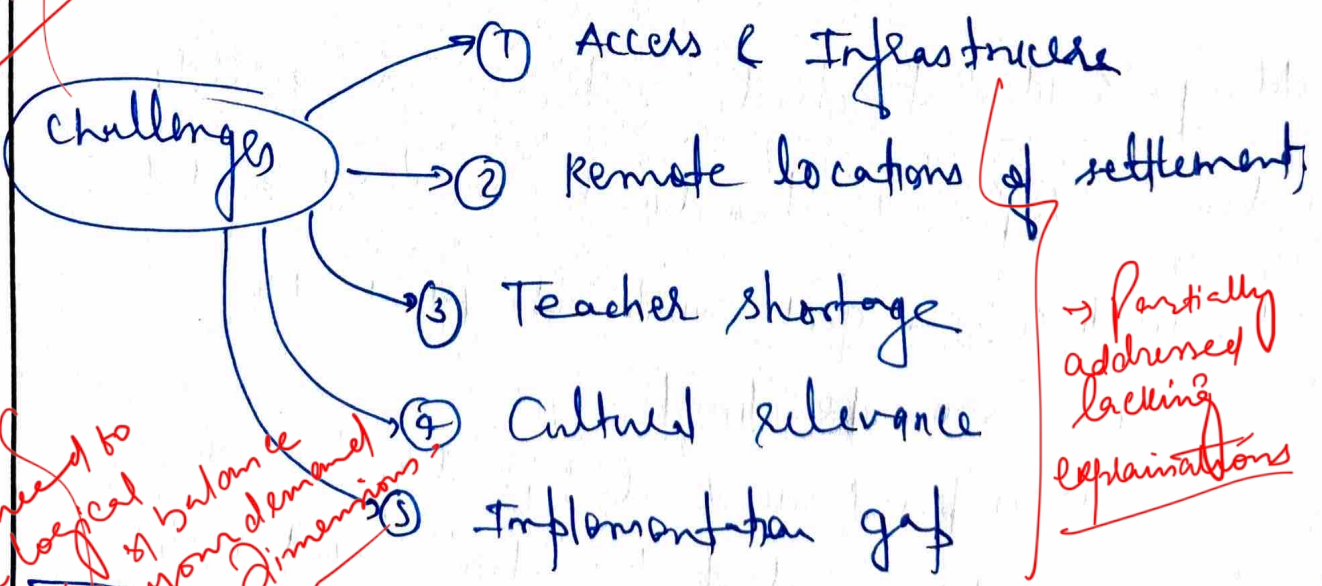 Challenges
① Access & Infrastrucere
② Remote locations of settlement,
③ Teacher shortage
④ Cultural relevance
⑤ Implementation gap
→ Partially
addressed
lacking
explainations
need to
logical
balance
your demand
Dimensions,